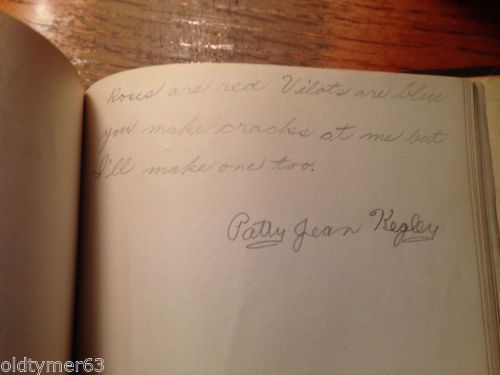 Roses are red Vilots are blue
you make cracks at me but
I'll make one too.
Patty Jean Kegley
oldtymer63